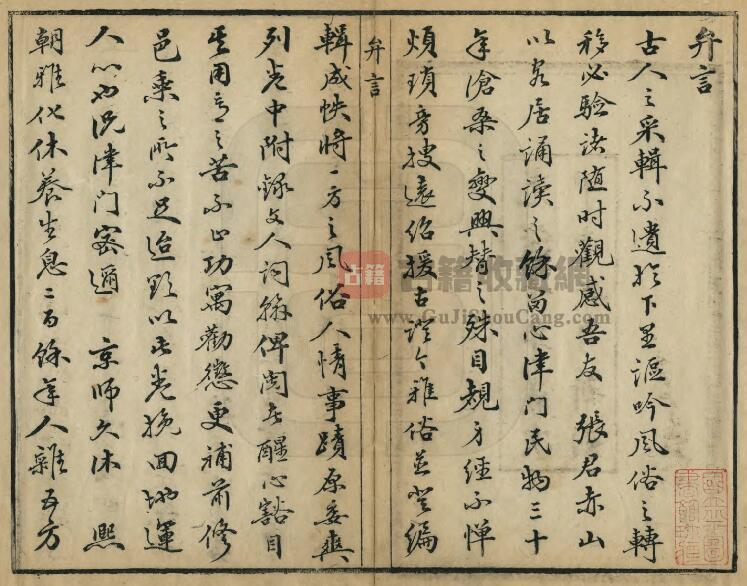 弁言
古人之采輯不遺於下里謳吟風俗之轉
移必驗諸随时觀感吾友 張君赤山
以家居誦讀之餘留心津门民物三十
年滄桑之變興替之殊目覩身經不憚
煩瑣旁搜遠绍援古證今雅俗並登編
弁言
輯成帙將一方之風俗人情事蹟原委爽
列卷中附錄文人词翰俾閱者醒心豁目
其用意之苦不止功寓勸懲更補前修
邑乘之所不足迨欲以此卷挽回地運
人心也况津门密邇 京师久沐 熙
朝雅化休養生息二百餘年人雜五方
古籍 古籍收藏網
www.GuJiShouCang.com